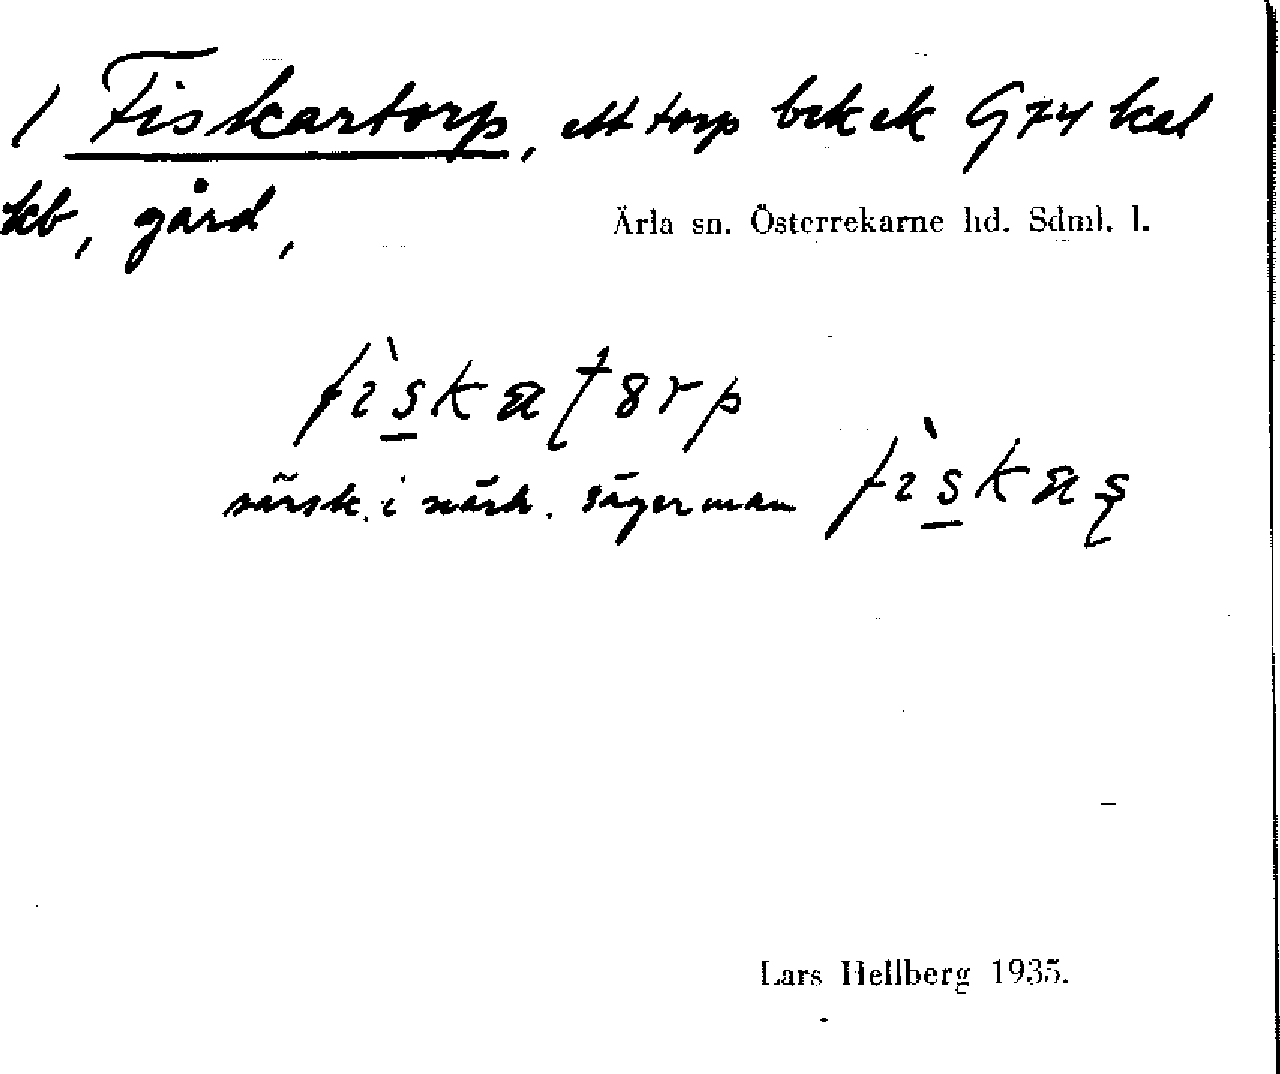 1 Fiskartorp, ett torp bek ek G74 kal
kb, gård,
Ärla sn. Österrekarne hd. Sdml. l.
fìskatorp
särsk. i närh. säger man fìskas
Lars Hellberg 1935.